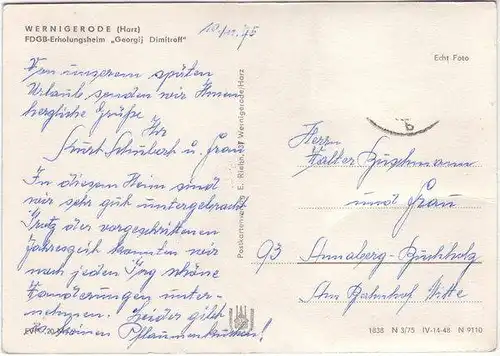 WERNIGERODE (Harz)
FDGB-Erholungsheim „Georgij Dimitroff"
10/11.75
Echt Foto
Von unserem späten
Urlaub senden wir Ihnen
herzliche Grüße
Ihr
Kurt Schubert u. Frau
In diesem Heim sind
wir sehr gut untergebracht
Trotz der vorgeschrittenen
Jahreszeit konnten wir
noch jeden Tag schöne
Wanderungen unter-
nehmen. Leider gibt
es keinen Pflaumenkuchen!
Postkartenverlag E. Riehn, 37 Wernigerode/Harz
Herrn
Walter Buschmann
und Frau
93 Annaberg-Buchholz
Am Bahnhof Mitte
1838 N 3/75 IV-14-48 N 9110